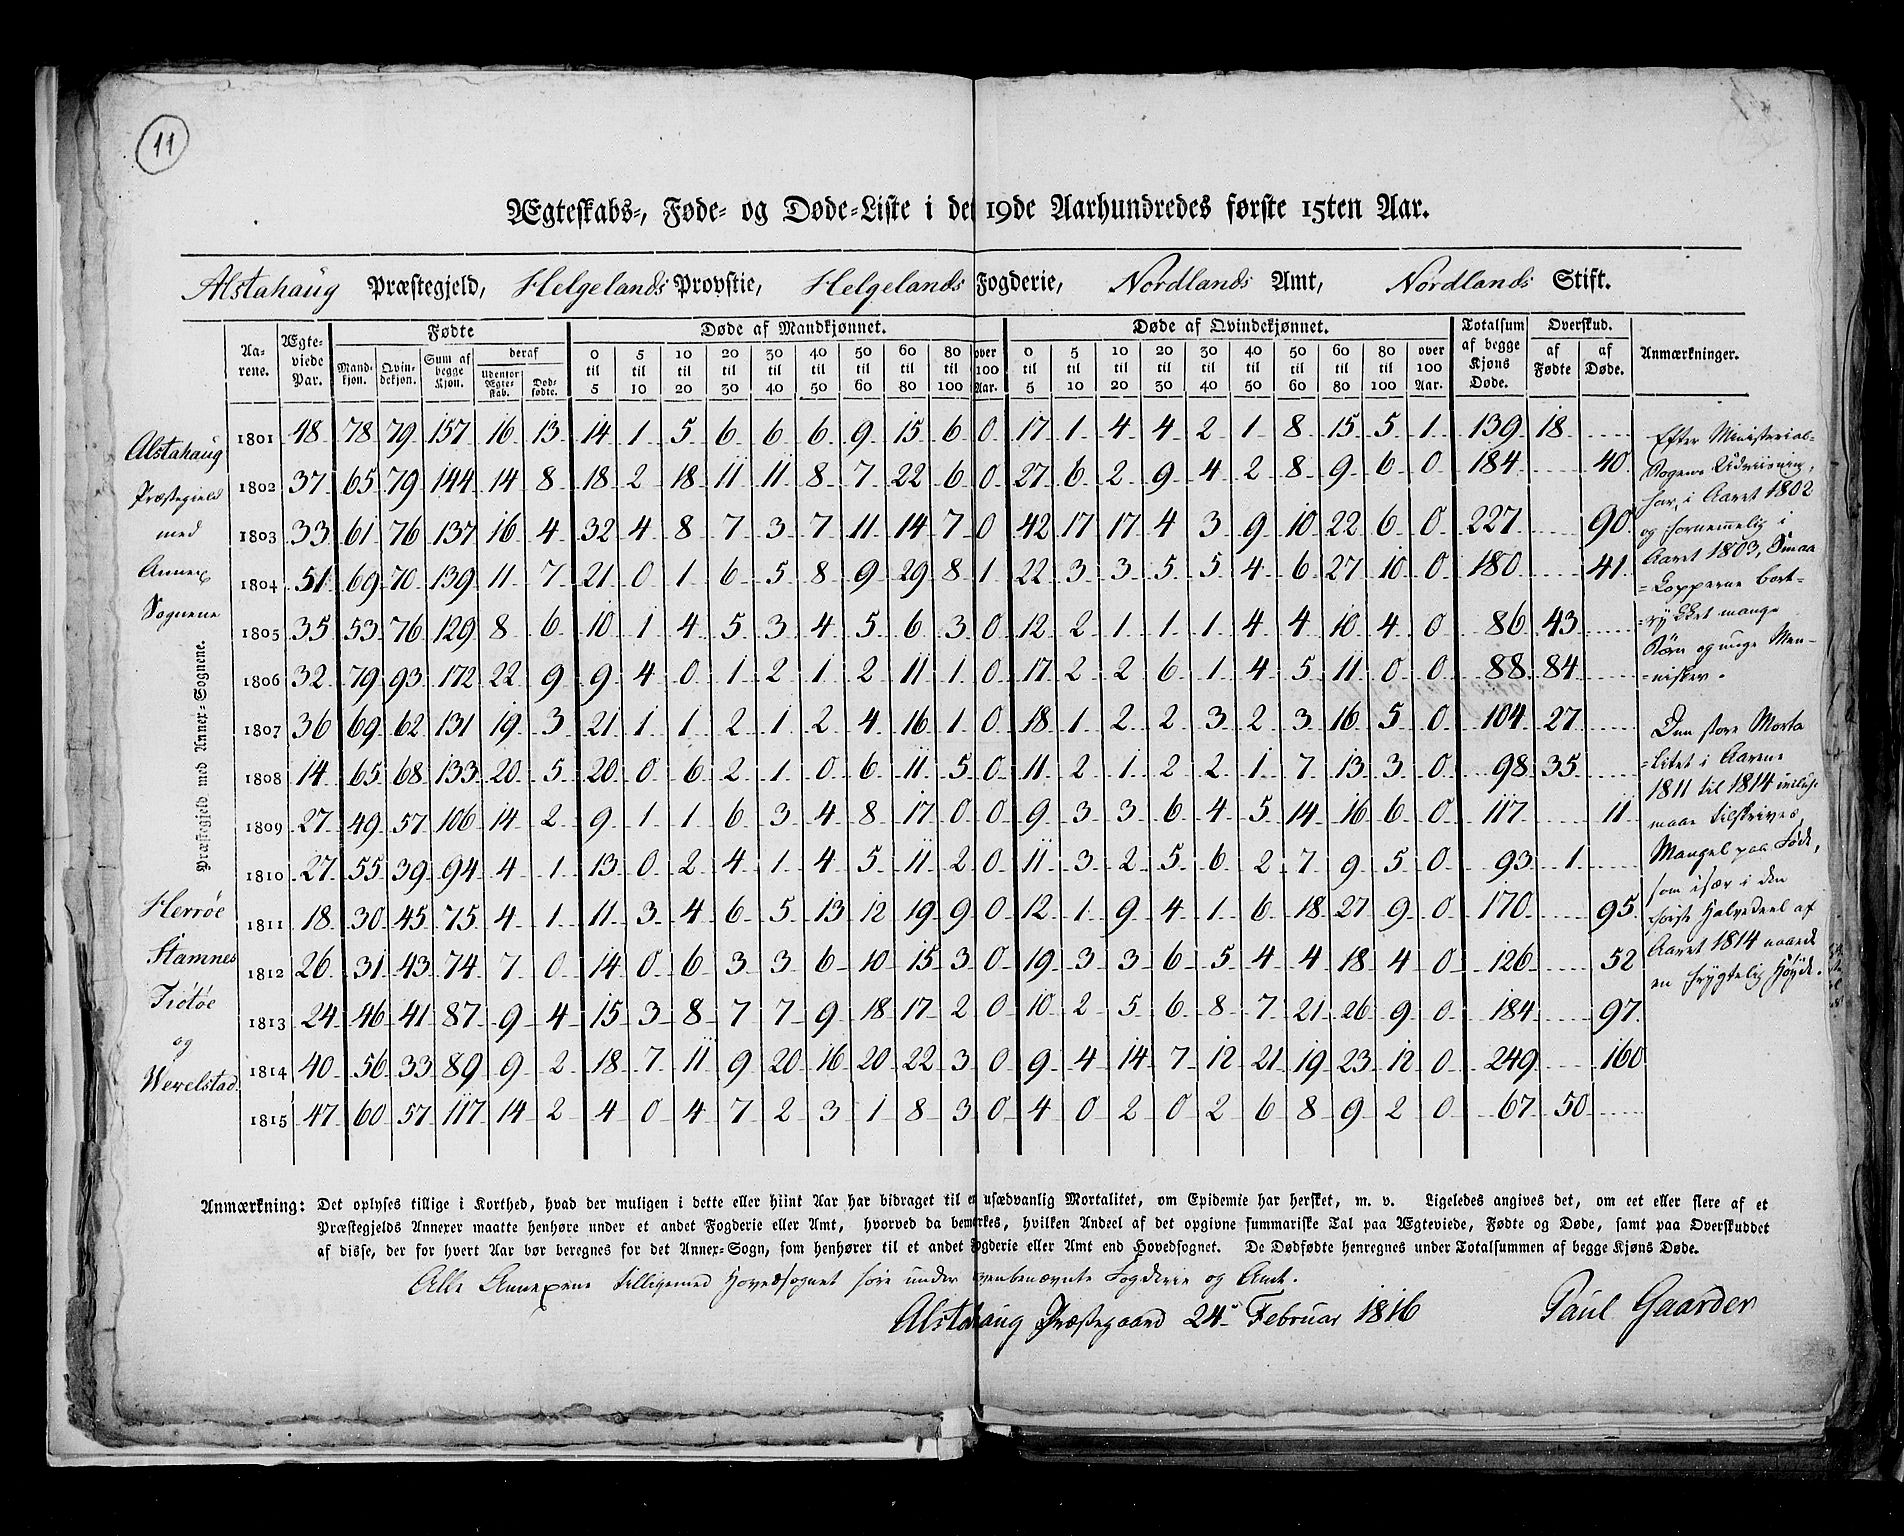 11
Ægteskabs-, Føde- og Døde-Liste i det 19de Aarhundredes første 15ten Aar.
Alstahaug Præstegjeld, Helgelands Provstie, Helgelands Fogderie, Nordlands Amt, Nordlands Stift.
Aarene. Ægteviede Par. Fødte Døde af Mandkjønnet. Døde af Qvindekjønnet. Totalsum af begge Kjøns Døde. Overskud. Anmærkninger.
Mandkjøn. Qvindekjøn. Sum af begge Kjøn. deraf Udenfor Ægteskab. Dødfødte. 0 til 5 5 til 10 10 til 20 20 til 30 30 til 40 40 til 50 50 til 60 60 til 80 80 til 100 over 100 Aar. 0 til 5 5 til 10 10 til 20 20 til 30 30 til 40 40 til 50 50 til 60 60 til 80 80 til 100 over 100 Aar. af Fødte af Døde.
1801 48 78 79 157 16 13 14 1 5 6 6 6 9 15 6 0 17 1 4 4 2 1 8 15 5 1 139 18 ....
1802 37 65 79 144 14 8 18 2 18 11 11 8 7 22 6 0 27 6 2 9 4 2 8 9 6 0 184 .... 40
1803 33 61 76 137 16 4 32 4 8 7 3 7 11 14 7 0 42 17 17 4 3 9 10 22 6 0 227 .... 90
1804 51 69 70 139 11 7 21 0 1 6 5 8 9 29 8 1 22 3 3 5 5 4 6 27 10 0 180 .... 41
1805 35 53 76 129 8 6 10 1 4 5 3 4 5 6 3 0 12 2 1 1 1 4 4 10 4 0 86 43 ....
1806 32 79 93 172 22 9 9 4 0 1 2 1 2 11 1 0 17 2 2 6 1 4 5 11 0 0 88 84 ....
1807 36 69 62 131 19 3 21 1 1 2 1 2 4 16 1 0 18 1 2 2 3 2 3 16 5 0 104 27 ....
1808 14 65 68 133 20 5 20 0 6 2 1 0 6 11 5 0 11 2 1 2 2 1 7 13 3 0 98 35 ....
1809 27 49 57 106 14 2 9 1 1 6 3 4 8 17 0 0 9 3 3 6 4 5 14 16 6 0 117 .... 11
1810 27 55 39 94 4 1 13 0 2 4 1 4 5 11 2 0 11 3 2 5 6 2 7 9 5 0 93 1 ....
1811 18 30 45 75 4 1 11 3 4 6 5 13 12 19 9 0 12 1 9 4 1 6 18 27 9 0 170 .... 95
1812 26 31 43 74 7 0 14 0 6 3 3 6 10 15 3 0 19 3 3 6 5 4 4 18 4 0 126 .... 52
1813 24 46 41 87 9 4 15 3 8 7 7 9 18 17 2 0 10 2 5 6 8 7 21 26 9 0 184 .... 97
1814 40 56 33 89 9 2 18 7 11 9 20 16 20 22 3 0 9 4 14 7 12 21 19 23 12 0 249 .... 160
1815 47 60 57 117 14 2 4 0 4 7 2 3 1 8 3 0 4 0 2 0 2 6 8 9 2 0 67 50 ....
Alstahaug
Præstegield
med
Annex
Sognene
Præstegjeld med Annex-Sognene.
Herrøe
Stamnes
Tiotøe
og
Werelstad
Efter Ministerial-
Bogens Udviisning,
har, i Aaret 1802
og fornemmelig i
Aaret 1803, Smaa
=Kopperne bort-
=rykket mange
Børn og unge Men-
=nisker.
Den store Morta
=litet i Aarene
1811 til 1814 inclus.
maae tilskrives
Mangel paa Føde,
som især i den
første Halvedeel af
Aaret 1814 naaede
en frygtelig Høyde.
Anmærkning: Det oplyses tillige i Korthed, hvad der muligen i dette eller hiint Aar har bidraget til en usædvanlig Mortalitet, om Epidemie har hersket, m. v. Ligeledes angives det, om eet eller flere af et
Præstegjelds Annexer maatte henhøre under et andet Fogderie eller Amt, hvorved da bemærkes, hvilken Andeel af det opgivne summariske Tal paa Ægteviede, Fødte og Døde, samt paa Overskuddet
af disse, der for hvert Aar bør beregnes for det Annex-Sogn, som henhører til et andet Fogderie eller Amt end Hovedsognet. De Dødfødte henregnes under Totalsummen af begge Kjøns Døde.
Alle Annexene tilligemed Hovedsognet høre under ovenbenævnte Fogderie og Amt.
Alstahaug Præstegaard 24de Februar 1816 Paul Gaarder